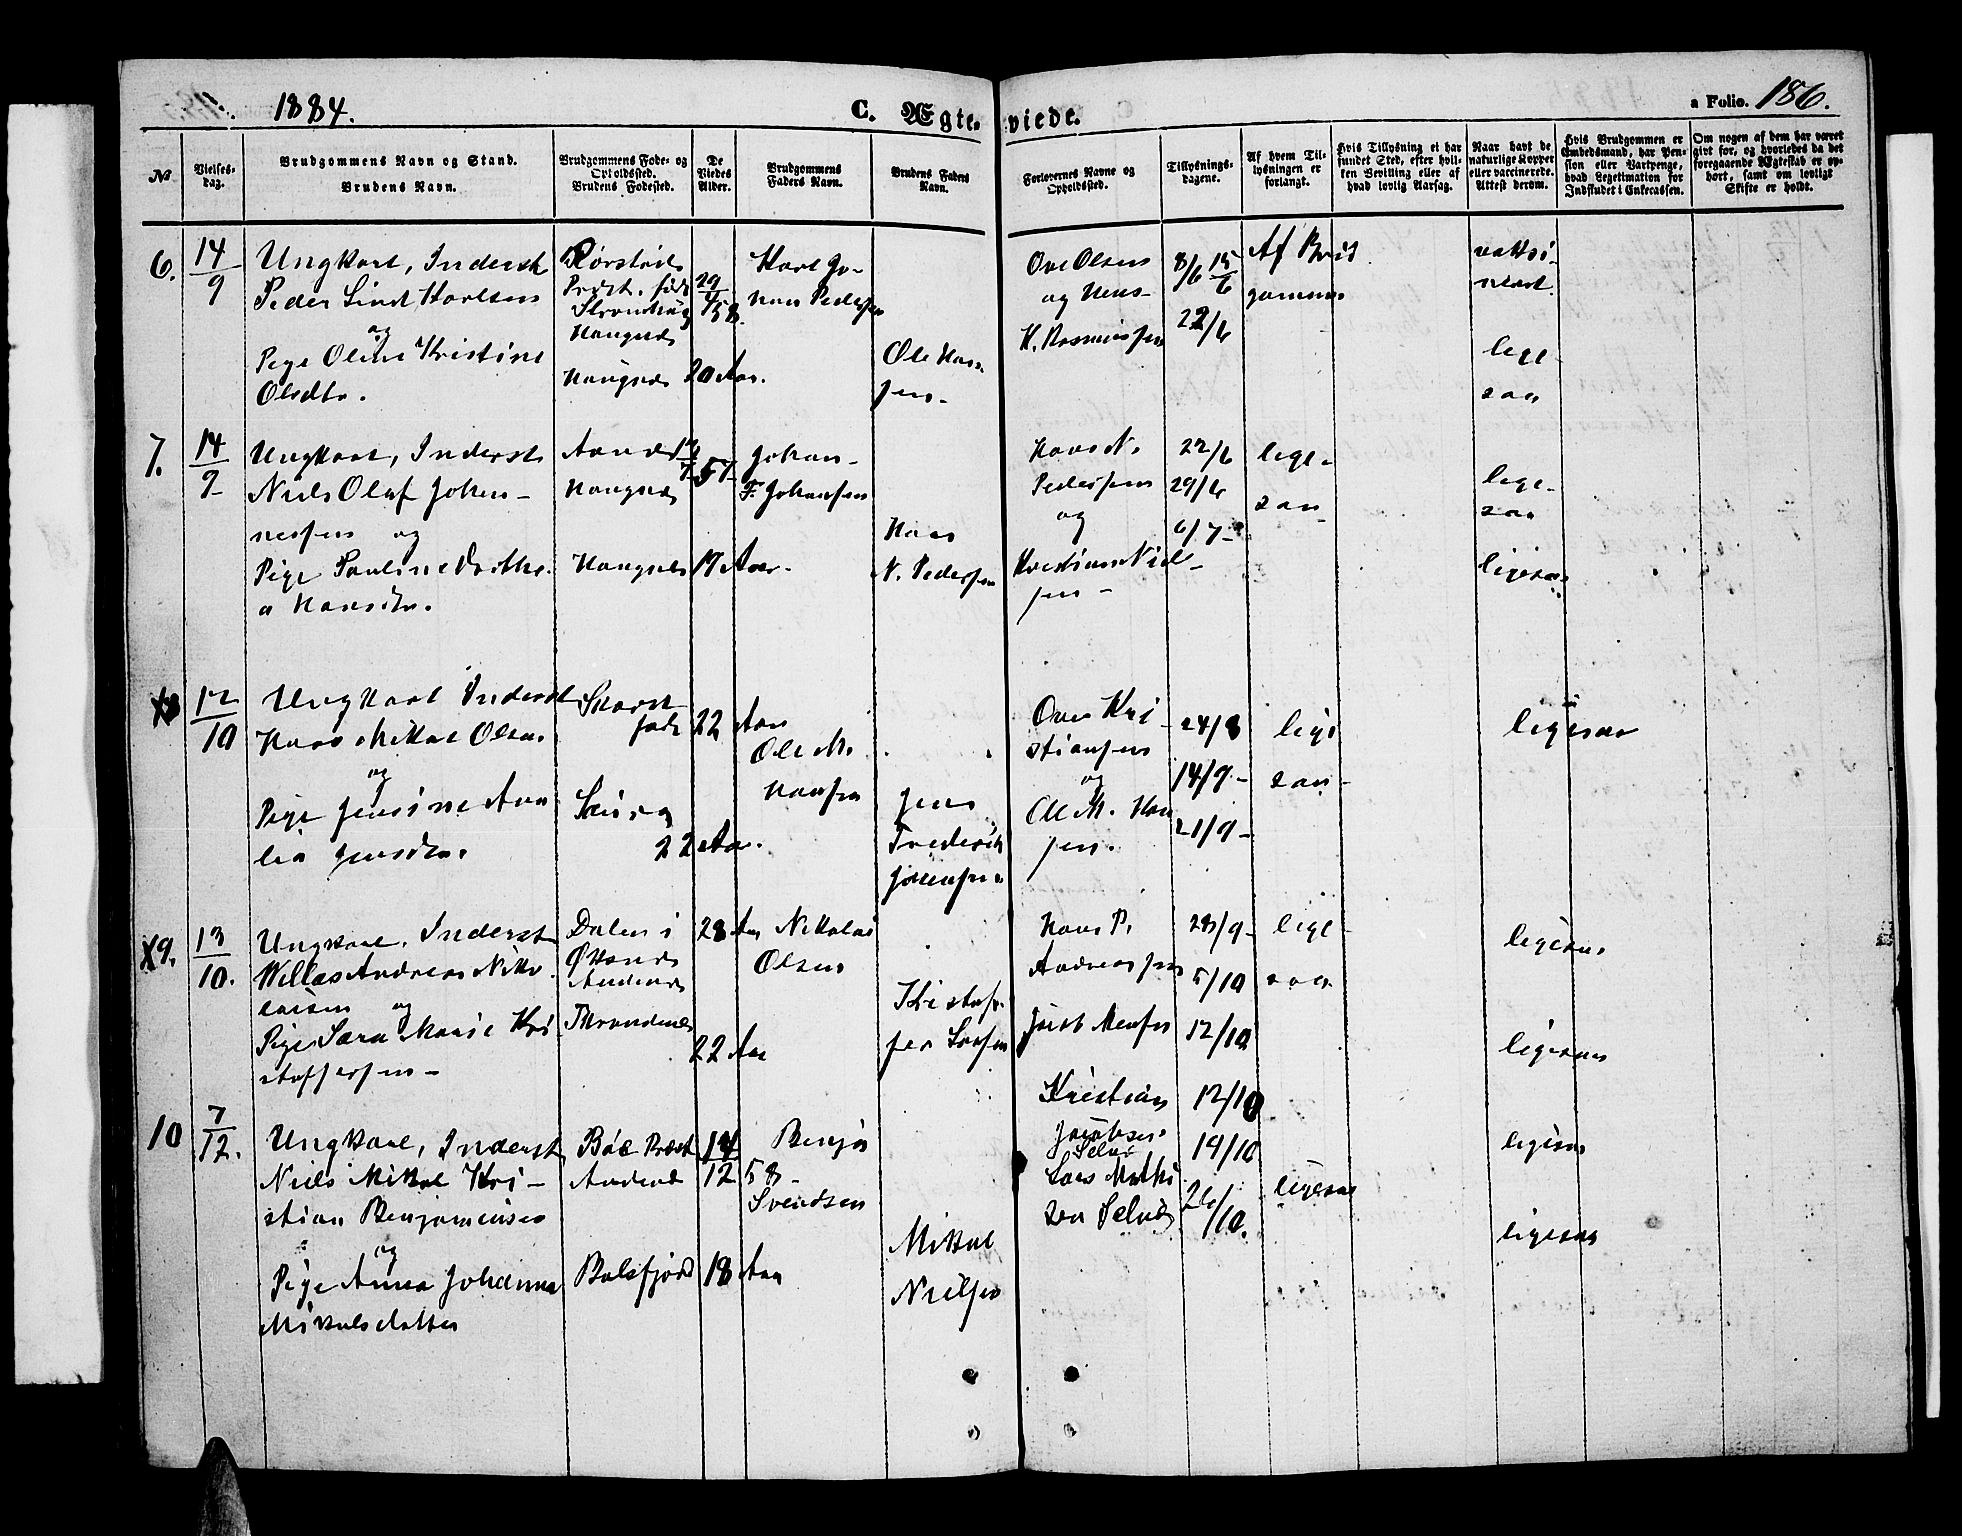 1884.
C. Ægte-
viede.
a Folio. 186.
No
Vielses-
dag.
Brudgommens Navn og Stand.
Brudens Navn.
Brudgommens Føde- og
Opholdssted.
Brudens Fødested.
De
Viedes
Alder.
Brudgommens
Faders Navn.
Brudens Faders
Navn.
Forlovernes Navne og
Opholdssted.
Tillysnings-
dagene.
Af hvem Til-
lysningen er
forlangt.
Hvis Tillysning ei har
fundet Sted, efter hvil-
ken Bevilling eller af
hvad lovlig Aarsag.
Naar havt de
naturlige Kopper
eller vaccinerede.
Attest derom.
Hvis Brudgommen er
Embedsmand, har Pen-
sion eller Vartpenge,
hvad Legitimation for
Indskudet i Enkecassen.
Om nogen af dem har været
gift før, og hvorledes da det
foregaaende Ægteskab er op-
hørt, samt om lovligt
Skifte er holdt.
6.
14/9
Ungkarl, Inderst
Peder Lind Karlsen
og
Pige Oline Kristine
Olsdtr.
Rørstads
Præst. født
Haugnæs
Haugnæs
29/4 58.
20 Aar.
Karl Jo-
han Pedersen
Ole Han-
sen-
Ove Olsen
og Hans
K. Rasmussen
8/6 15/6
22/6
Af Brud
gommen
vaksi-
nert.
lige-
saa
7.
14/9
Ungkarl, Inderst
Niels Olaf Johan-
nessen og
Pige Pauline Dorthe-
a Hansdtr.
Haugnæs
Haugnæs
57
19 Aar-
Johan-
F. Johansen
Hans
N. Pedersen
Hans N.
Pedersen
og
Kristian Niel-
sen-
22/6
29/6
6/7-
lige-
saa
lige-
saa
ligesaa
8
12/10
Ungkarl Inderst
Hans Mikal Olsen
og
Pige Jensine Ama
lia Jensdtr.
22 Aar
22 Aar.
Ole M.
Hansen
Jens
Frederik
Johansen
Ove Kri
stiansen
og
Ole M. Han
sen.
24/8
14/9-
21/9-
lige
saa-
ligesaa
9.
13/10.
Ungkarl, Inderst
Willas Andreas Niko
laisen og
Pige Sara Marie Kri
stoffersen-
Dalen i
Andenæs
Throndenæs
28 Aar
22 Aar
Nikolai
Olsen
Kristof-
fer Larsen
Hans P.
Andreassen
28/9-
5/10
12/10
lige-
saa
ligesaa
ligesaa
10
7/12.
Ungkarl, Inderst
Niels Mikal Kri-
stian Benjaminsen
og
Pige Anna Johanna
Mikalsdatter
Bøe Præst
Andenæs
Balsfjord
14/12 58-
18 Aar
Benja
Svendsen
Mikal
Nielsen
Kristian
Jacobsen
Selnæs
Lars Mathi
sen Selnæs
12/10
19/10
26/10.
ligesaa
ligesaa
ligesaa